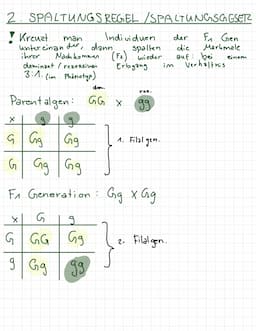 2. SPALTUNGSREGEL/SPALTUNGSGESETZ
! Kreuzt man Individuen der F₁ Gen
untereinander, dann spalten die Merkmale
ihrer Nachkommen (F₂) wieder auf: bei einem
dominant / rezessiven Erbgang im Verhältnis
3:1. (im Phänotyp)
dom. rez.
Parentalgen: GG x gg
x g g
G Gg Gg
G Gg Gg
1. Filialgen.
F₁ Generation: Gg x Gg
x G g
G GG Gg
g Gg gg
2. Filialgen.